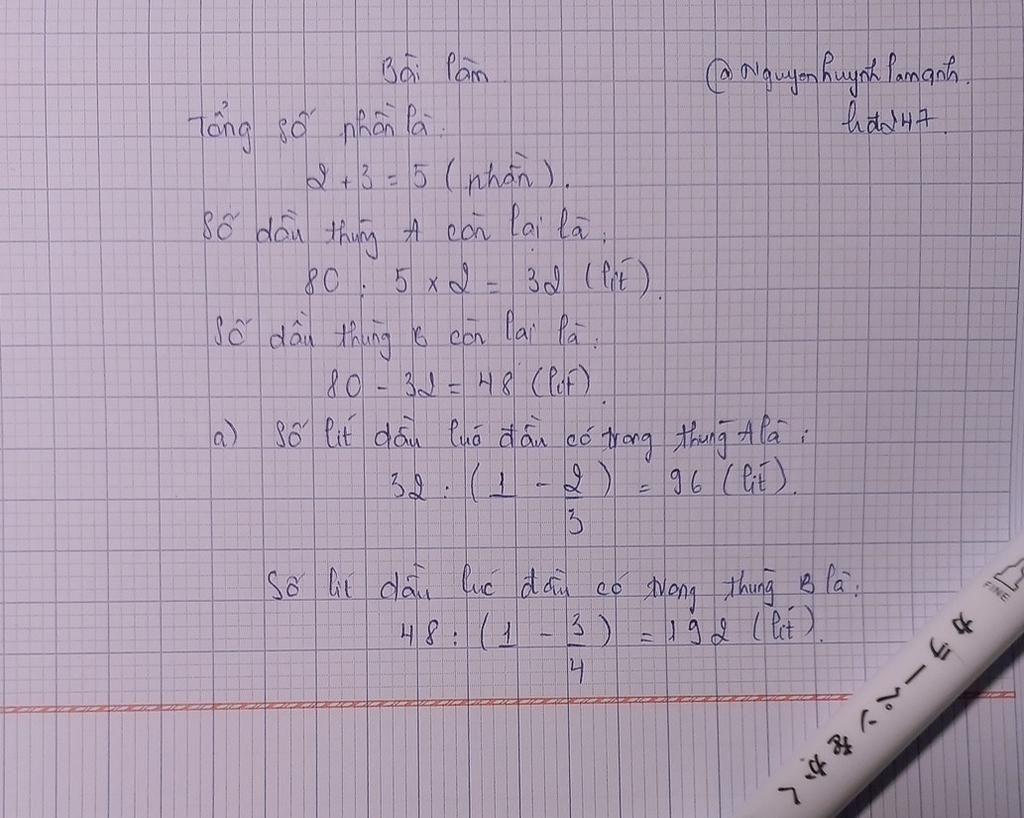 Bài làm
@Nguyenhuynhlamanh.
hd247
Tổng số phần là:
2 + 3 = 5 (phần).
Số dầu thùng A còn lại là:
80 : 5 x 2 = 32 (lít).
Số dầu thùng B còn lại là:
80 - 32 = 48 (lít).
a) Số lít dầu lúc đầu có trong thùng A là:
32 : (1 - 2/3) = 96 (lít).
Số lít dầu lúc đầu có trong thùng B là:
48 : (1 - 3/4) = 192 (lít).
FINE
カラーペン